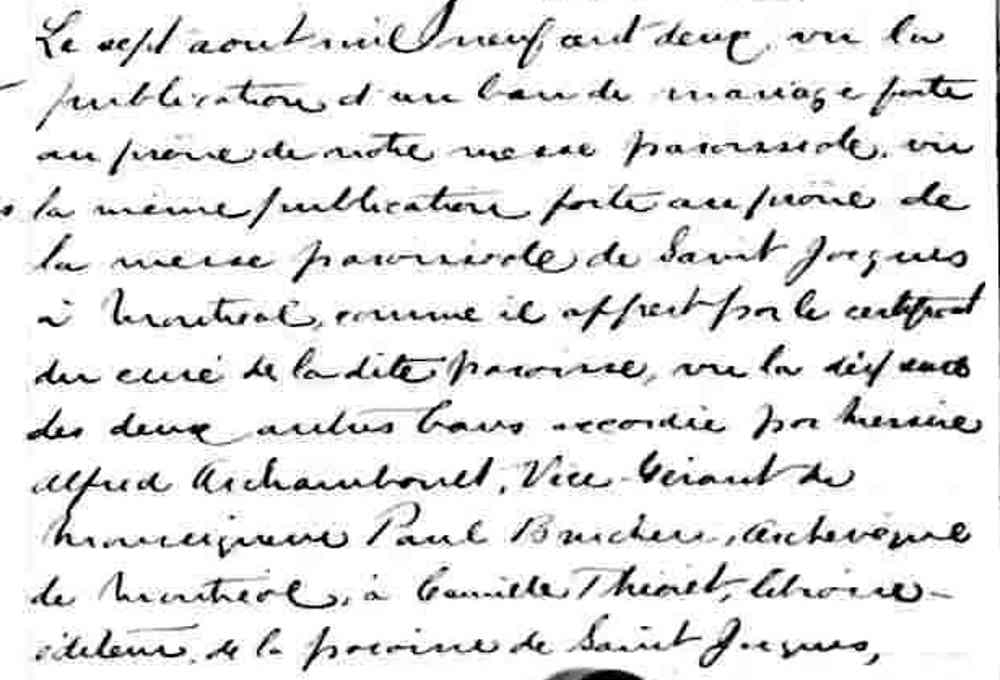 Le sept aout mil neuf cent deux, vu la
publication d'un ban de mariage faite
au prône de notre messe paroissiale, vu
la même publication faite au prône de
la messe paroissiale de Saint Jacques
à Montréal, comme il appert par le certificat
du curé de la dite paroisse, vu la dispense
des deux autres bans accordée par Messire
Alfred Archambault, Vice-Gérant de
Monseigneur Paul Bruchesi, Archevêque
de Montréal, à Camille Thioret, libraire-
éditeur, de la paroisse de Saint Jacques,